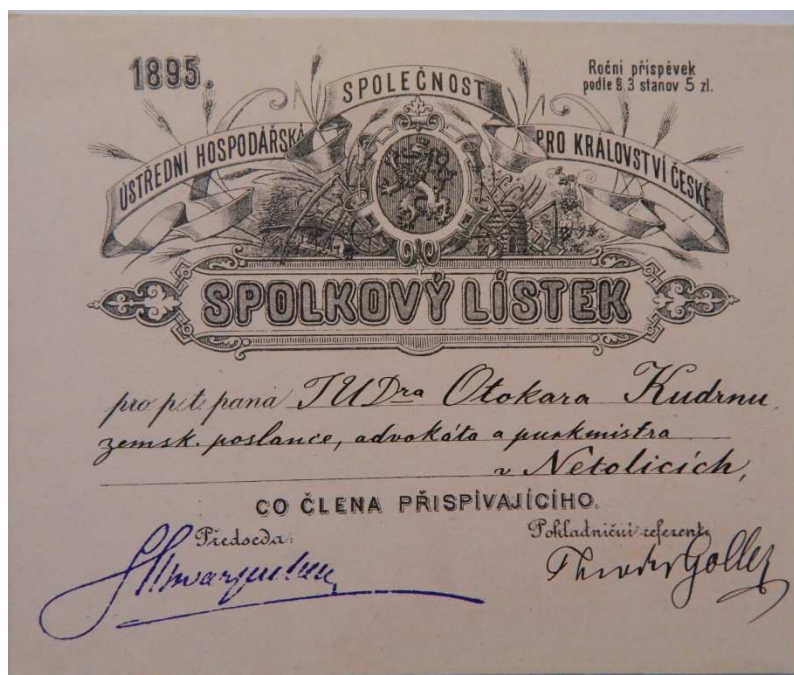 1895.
Roční příspěvek
podle § 3 stanov 5 zl.
ÚSTŘEDNÍ HOSPODÁŘSKÁ SPOLEČNOST PRO KRÁLOVSTVÍ ČESKÉ
SPOLKOVÝ LÍSTEK
pro p. t. pana JUDra Otokara Kudrnu
zemsk. poslance, advokáta a purkmistra
v Netolicích,
CO ČLENA PŘISPÍVAJÍCÍHO.
Předseda: Pokladniční referent:
Theodor